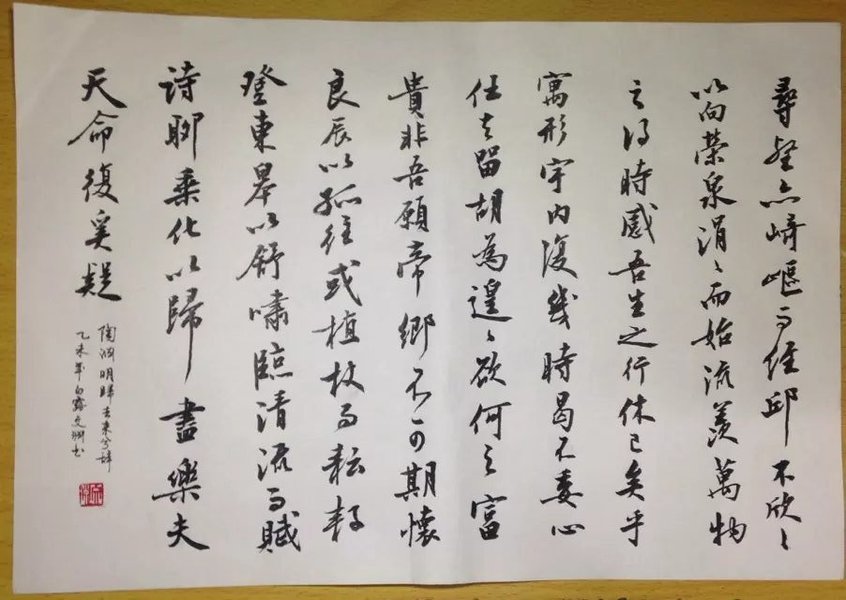 尋壑亦崎嶇而經邱木欣〻
以向榮泉涓〻而始流羨萬物
之得時感吾生之行休已矣乎
寓形宇內復幾時曷不委心
任去留胡為遑〻欲何之富
貴非吾願帝鄉不可期懷
良辰以孤往或植杖而耘耔
登東皋以舒嘯臨清流而賦
詩聊乘化以歸盡樂夫
天命復奚疑
陶淵明歸去來兮辭
乙未年白露文书